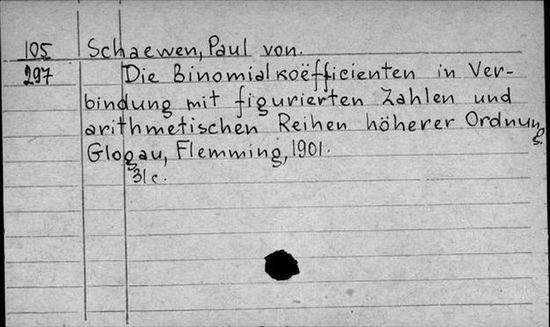 105 Schaewen, Paul von.
297 Die Binomialkoëfficienten in Ver-
bindung mit figurierten Zahlen und
arithmetischen Reihen höherer Ordnung.
Glogau, Flemming, 1901.
31c.